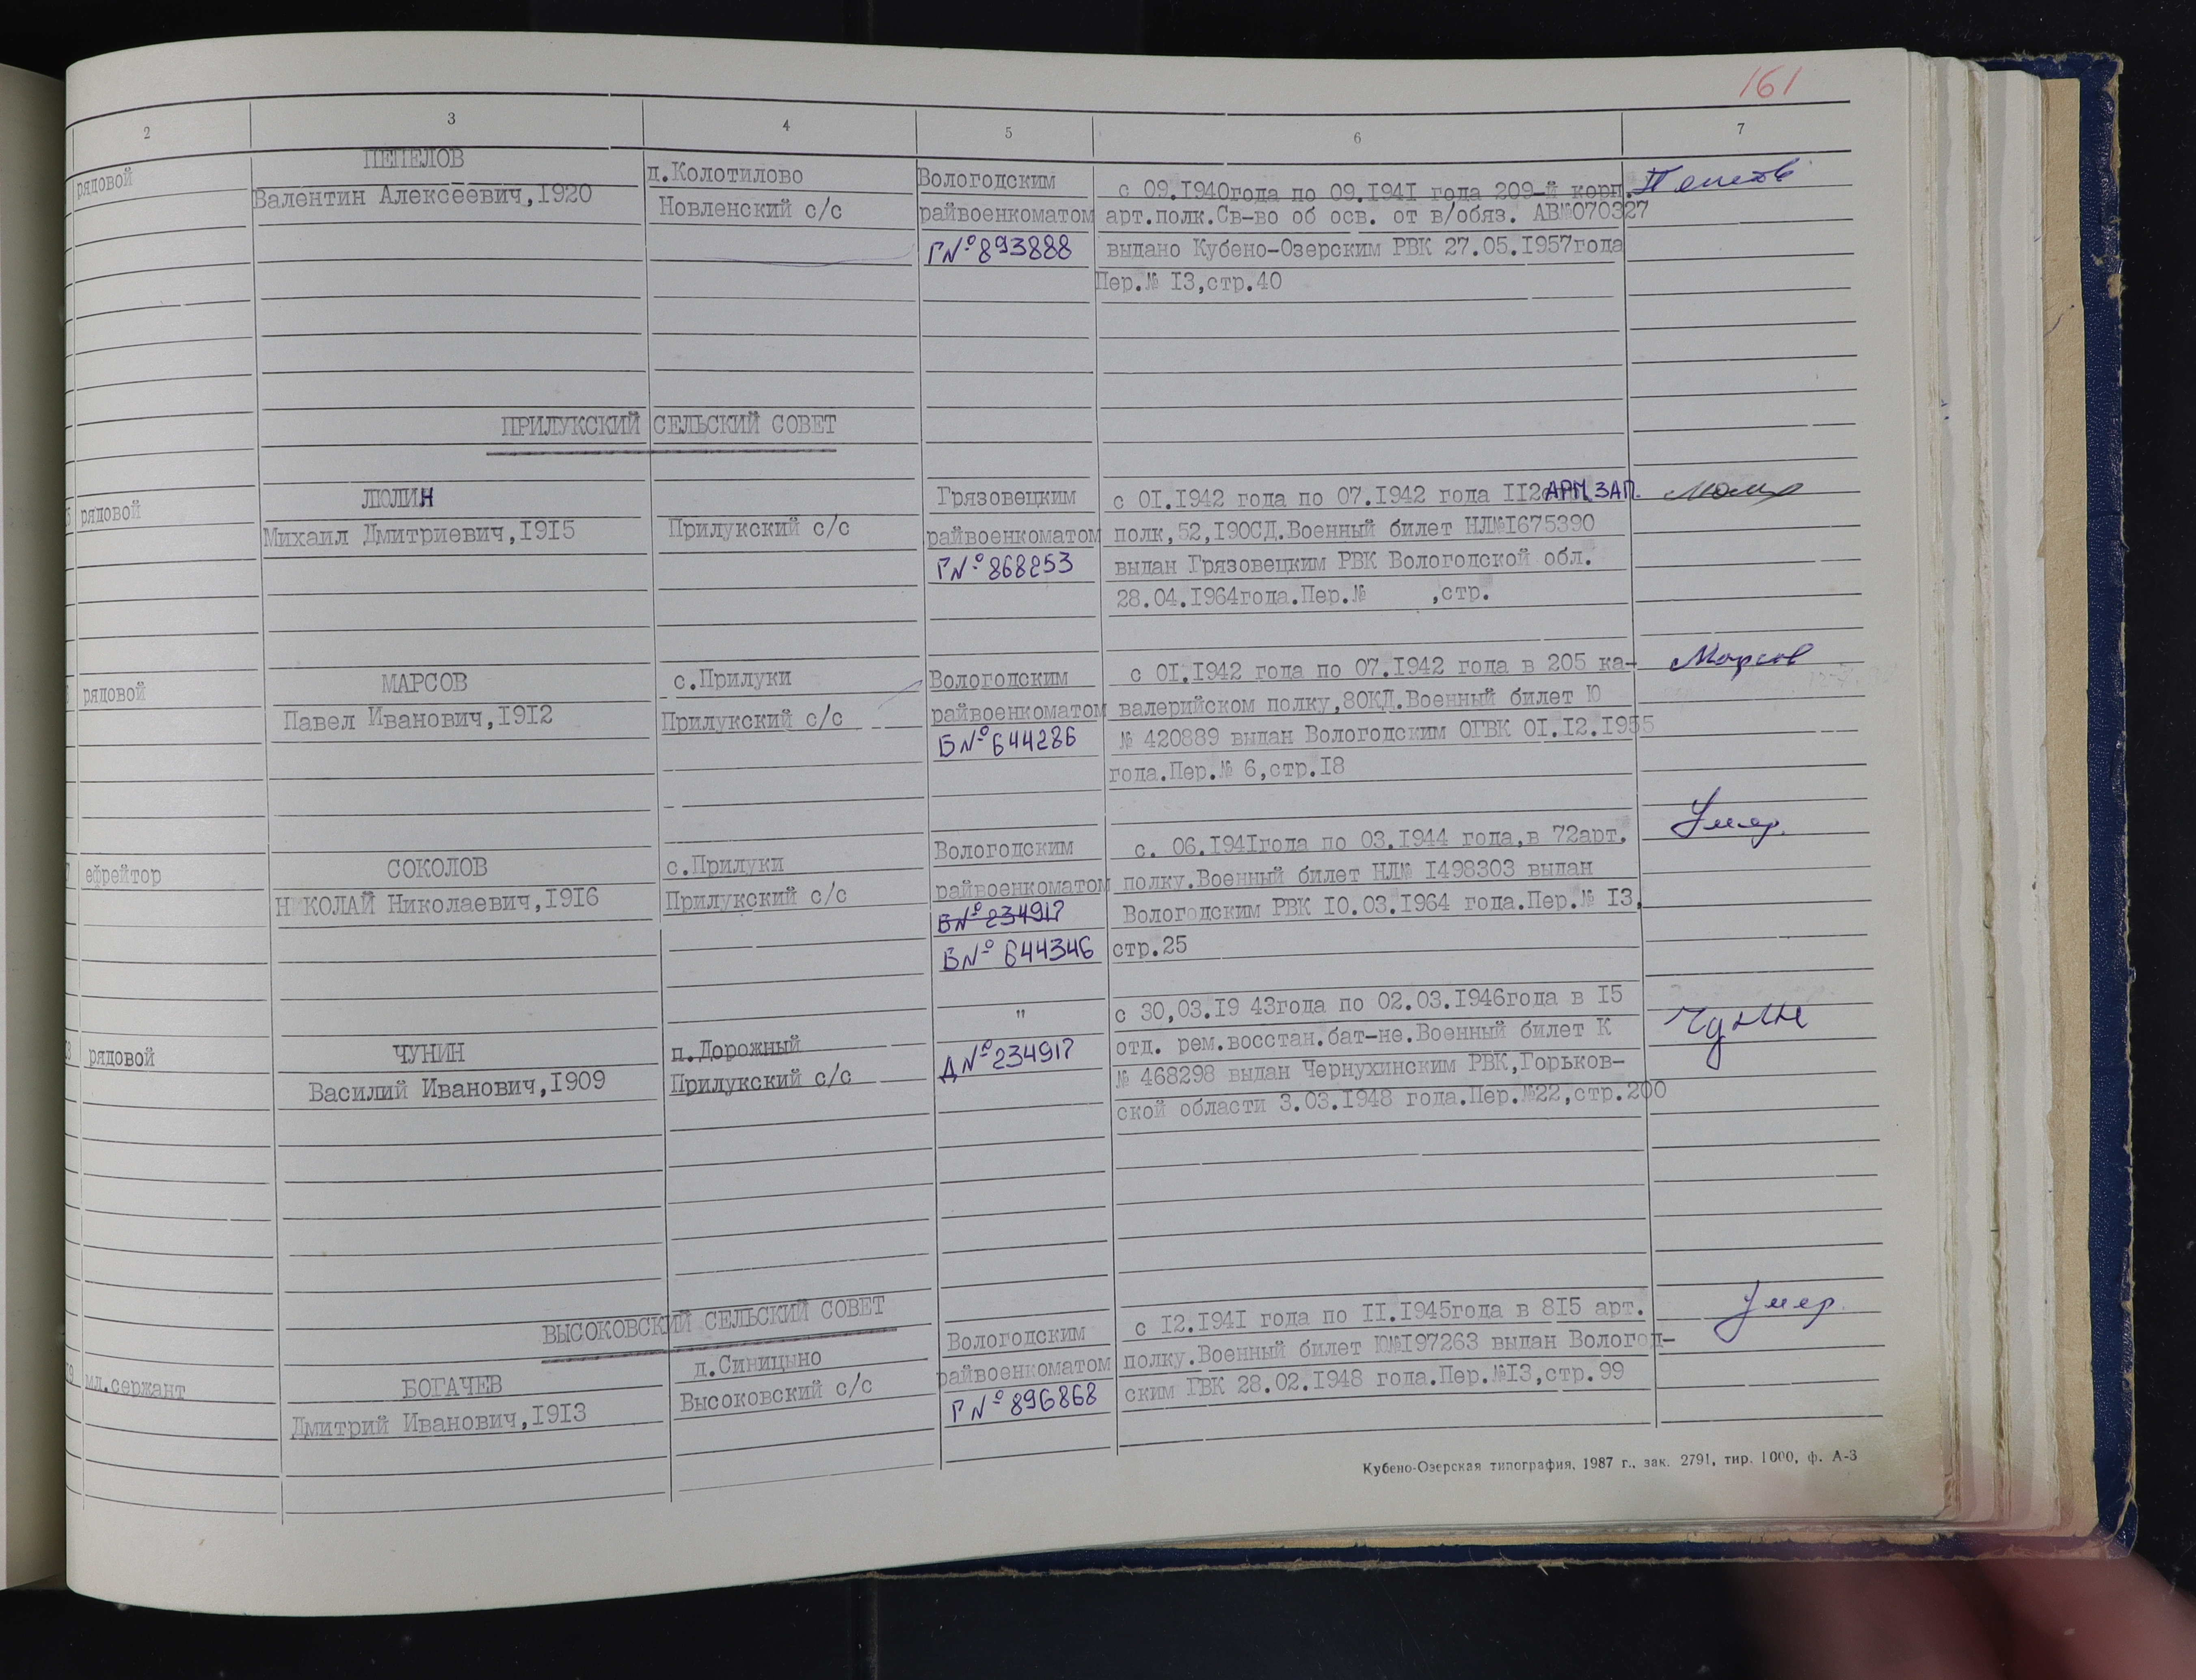 161
2 3 4 5 6 7
рядовой
ПЕПЕЛОВ
Валентин Алексеевич,I920
д.Колотилово
Новленский с/с
Вологодским
райвоенкоматом
Г№893888
с 09.I940года по 09.I94I года 209-й корп.
арт.полк.Св-во об осв. от в/обяз. АВ№070327
выдано Кубено-Озерским РВК 27.05.I957года
Пер.№ I3,стр.40
ПРИЛУКСКИЙ СЕЛЬСКИЙ СОВЕТ
рядовой
ЛЮЛИН
Михаил Дмитриевич,I9I5
Прилукский с/с
Грязовецким
райвоенкоматом
Г№868253
с 0I.I942 года по 07.I942 года II2 АРМ. ЗАП.
полк,52,I90СД.Военный билет НЛ№I675390
выдан Грязовецким РВК Вологодской обл.
28.04.I964года.Пер.№ ,стр.
рядовой
МАРСОВ
Павел Иванович,I9I2
с.Прилуки
Прилукский с/с
Вологодским
райвоенкоматом
Б№644286
с 0I.I942 года по 07.I942 года в 205 ка-
валерийском полку,80КД.Военный билет Ю
№ 420889 выдан Вологодским ОГВК 0I.I2.I955
года.Пер.№ 6,стр.I8
Марсов
ефрейтор
СОКОЛОВ
Н КОЛАЙ Николаевич,I9I6
с.Прилуки
Прилукский с/с
Вологодским
райвоенкоматом
Б№234917
Б№ 644346
с. 06.I94Iгода по 03.I944 года,в 72арт.
полку.Военный билет НЛ№ I498303 выдан
Вологодским РВК I0.03.I964 года.Пер.№ I3,
стр.25
Умер.
рядовой
ЧУНИН
Василий Иванович,I909
п.Дорожный
Прилукский с/с
"
Д№234917
с 30,03.I9 43года по 02.03.I946года в I5
отд. рем.восстан.бат-не.Военный билет К
№ 468298 выдан Чернухинским РВК,Горьков-
ской области 3.03.I948 года.Пер.№22,стр.200
ВЫСОКОВСКИЙ СЕЛЬСКИЙ СОВЕТ
мл.сержант
БОГАЧЕВ
Дмитрий Иванович,I9I3
д.Синицыно
Высоковский с/с
Вологодским
райвоенкоматом
Г№896868
с I2.I94I года по II.I945года в 8I5 арт.
полку.Военный билет Ю№I97263 выдан Вологод-
ским ГВК 28.02.I948 года.Пер.№I3,стр.99
Умер.
Кубено-Озерская типография, 1987 г., зак. 2791, тир. 1000, ф. А-3